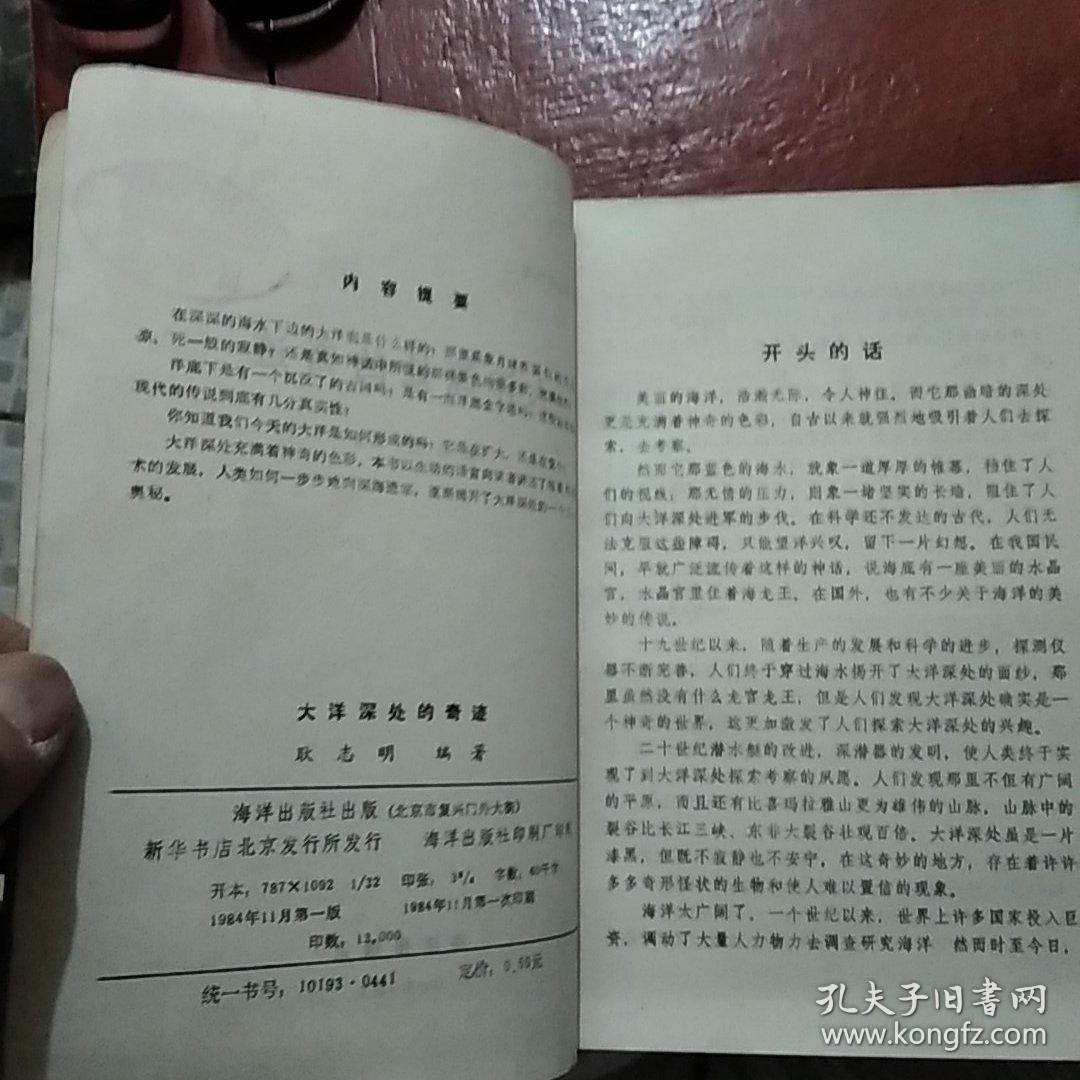 内容提要
在深深的海水下边的大洋底是什么样的？那里是象月球表面
凉、死一般的寂静？还是真如神话中所说的那样景色
洋底下是有一个沉没了的古国吗？是有一座洋底金字塔吗？这些
现代的传说到底有几分真实性？
你知道我们今天的大洋是如何形成的吗？它是在扩大，还是在
大洋深处充满着神奇的色彩，本书以生动的语言向读者讲述了随着
术的发展，人类如何一步步地向深海进军，逐渐揭开了大洋深处的一个
奥秘。
大洋深处的奇迹
耿志明 编著
海洋出版社出版（北京市复兴门外大街）
新华书店北京发行所发行 海洋出版社印刷厂印刷
开本：787×1092 1/32 印张：3 字数：60千字
1984年11月第一版 1984年11月第一次印刷
印数：13,000
统一书号：10193·0441 定价：0.50元
开头的话
美丽的海洋，浩瀚无际，令人神往。而它那幽暗的深处
更是充满着神奇的色彩，自古以来就强烈地吸引着人们去探
索，去考察。
然而它那蓝色的海水，就象一道厚厚的帷幕，挡住了人
们的视线；那无情的压力，则象一堵坚实的长墙，阻住了人
们向大洋深处进军的步伐。在科学还不发达的古代，人们无
法克服这些障碍，只能望洋兴叹，留下一片幻想。在我国民
间，早就广泛流传着这样的神话，说海底有一座美丽的水晶
宫，水晶宫里住着海龙王。在国外，也有不少关于海洋的美
妙的传说。
十九世纪以来，随着生产的发展和科学的进步，探测仪
器不断完善，人们终于穿过海水揭开了大洋深处的面纱，那
里虽然没有什么龙宫龙王，但是人们发现大洋深处确实是一
个神奇的世界，这更加激发了人们探索大洋深处的兴趣。
二十世纪潜水艇的改进，深潜器的发明，使人类终于实
现了到大洋深处探索考察的夙愿。人们发现那里不但有广阔
的平原，而且还有比喜玛拉雅山更为雄伟的山脉，山脉中的
裂谷比长江三峡、东非大裂谷壮观百倍。大洋深处虽是一片
漆黑，但既不寂静也不安宁，在这奇妙的地方，存在着许许
多多奇形怪状的生物和使人难以置信的现象。
海洋太广阔了，一个世纪以来，世界上许多国家投入巨
资，调动了大量人力物力去调查研究海洋 然而时至今日，
孔夫子旧书网
www.kongfz.com